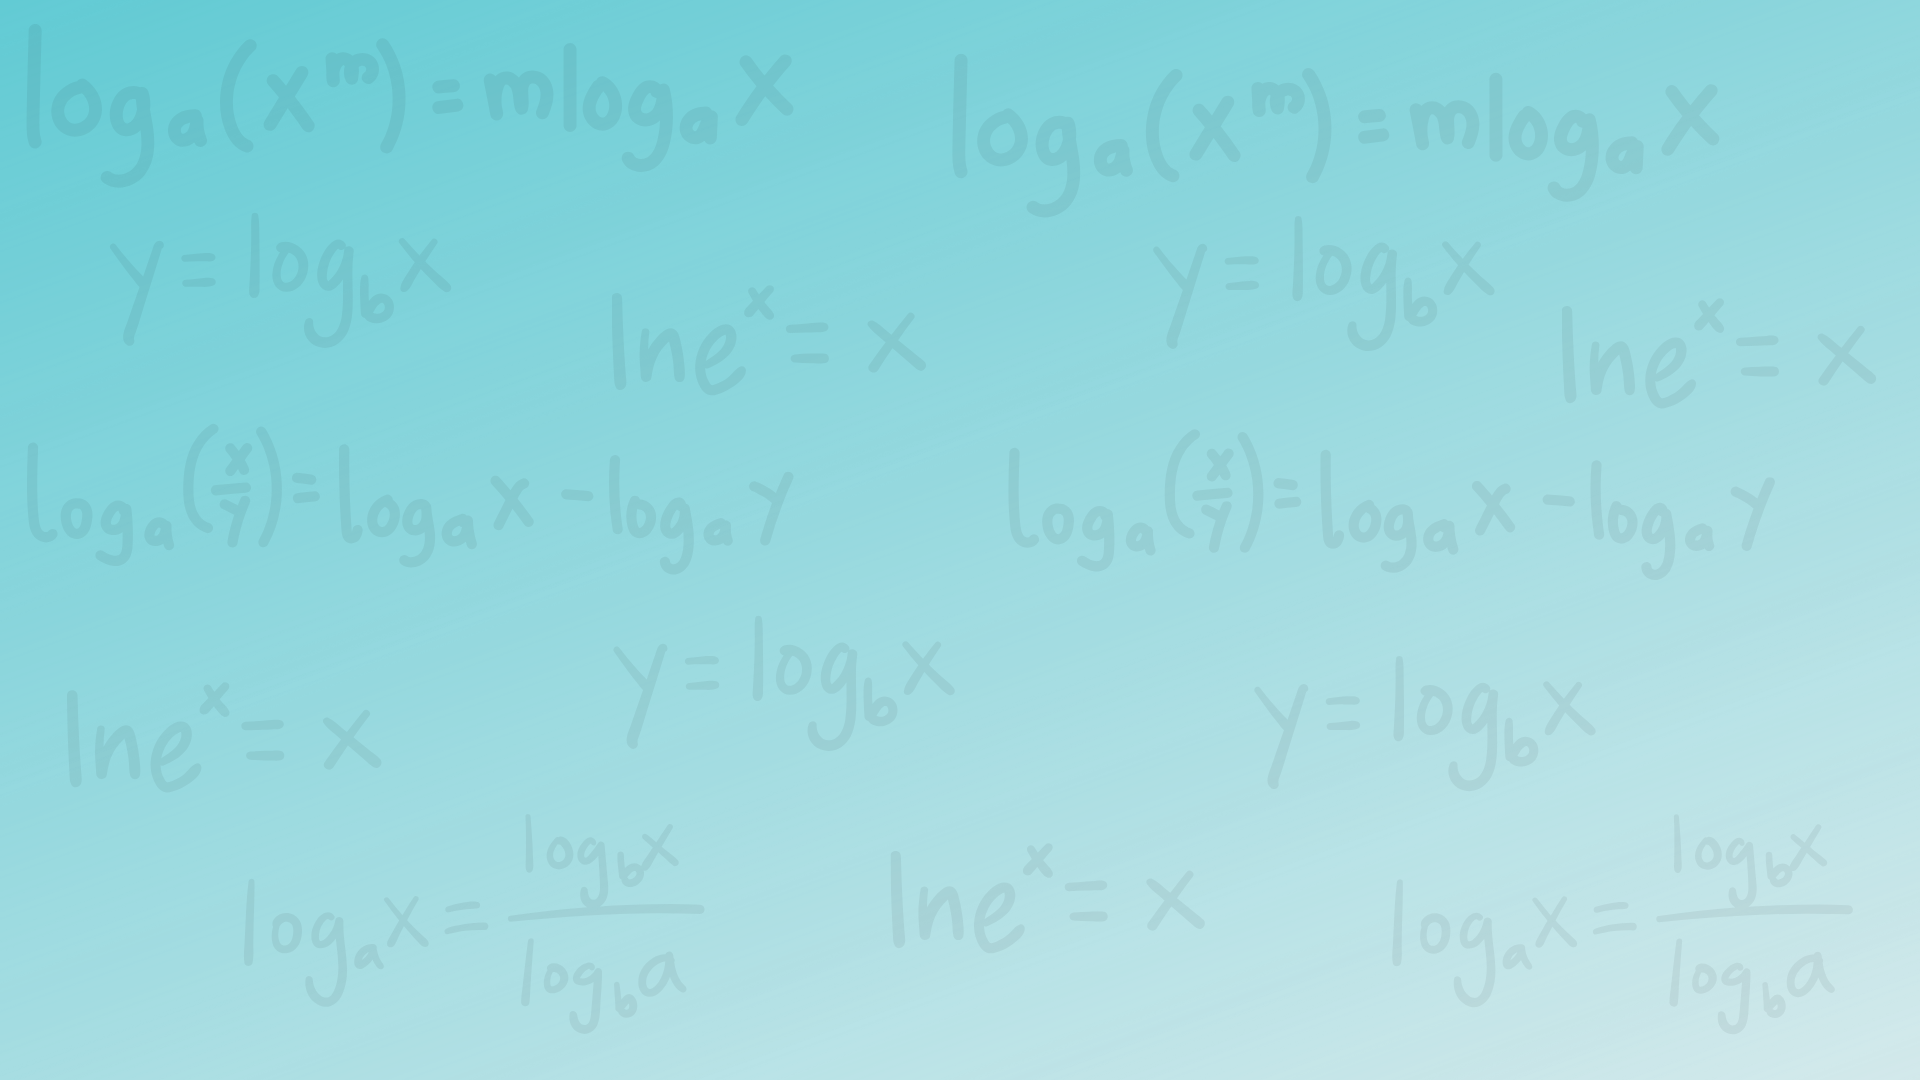 logₐ(xᵐ) = mlogₐx logₐ(xᵐ) = mlogₐx
y = log_b x y = log_b x
lneˣ = x lneˣ = x
logₐ(x/y) = logₐx - logₐy logₐ(x/y) = logₐx - logₐy
y = log_b x y = log_b x
lneˣ = x
logₐx = log_b x / log_b a lneˣ = x logₐx = log_b x / log_b a